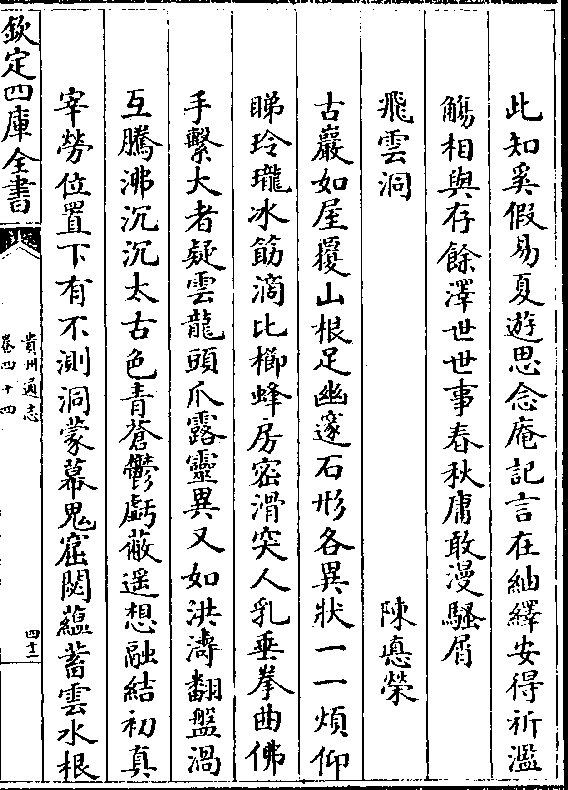 此知奚假易夏遊思念庵記言在紬繹安得祈濫
觴相與存餘澤世世事春秋庸敢漫騷屑
飛雲洞　陳悳榮
古巖如屋覆山根足幽邃石形各異狀一一煩仰
睇玲瓏冰筯滴比櫛蜂房密滑突人乳垂拳曲佛
手繫大者疑雲龍頭爪露靈異又如洪濤翻盤渦
互騰沸沉沉太古色青蒼鬱虧蔽遥想融結初真
宰勞位置下有不測洞蒙幕鬼窟閟蘊蓄雲水根
欽定四庫全書
貴州通志
卷四十四
四十二